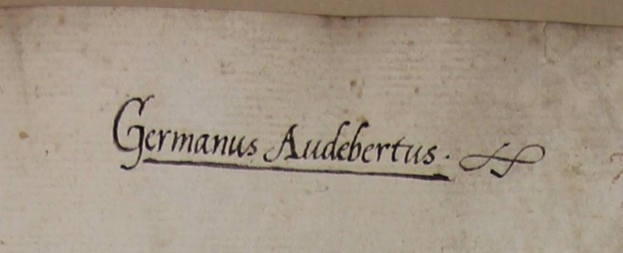 Germanus Audebertus.